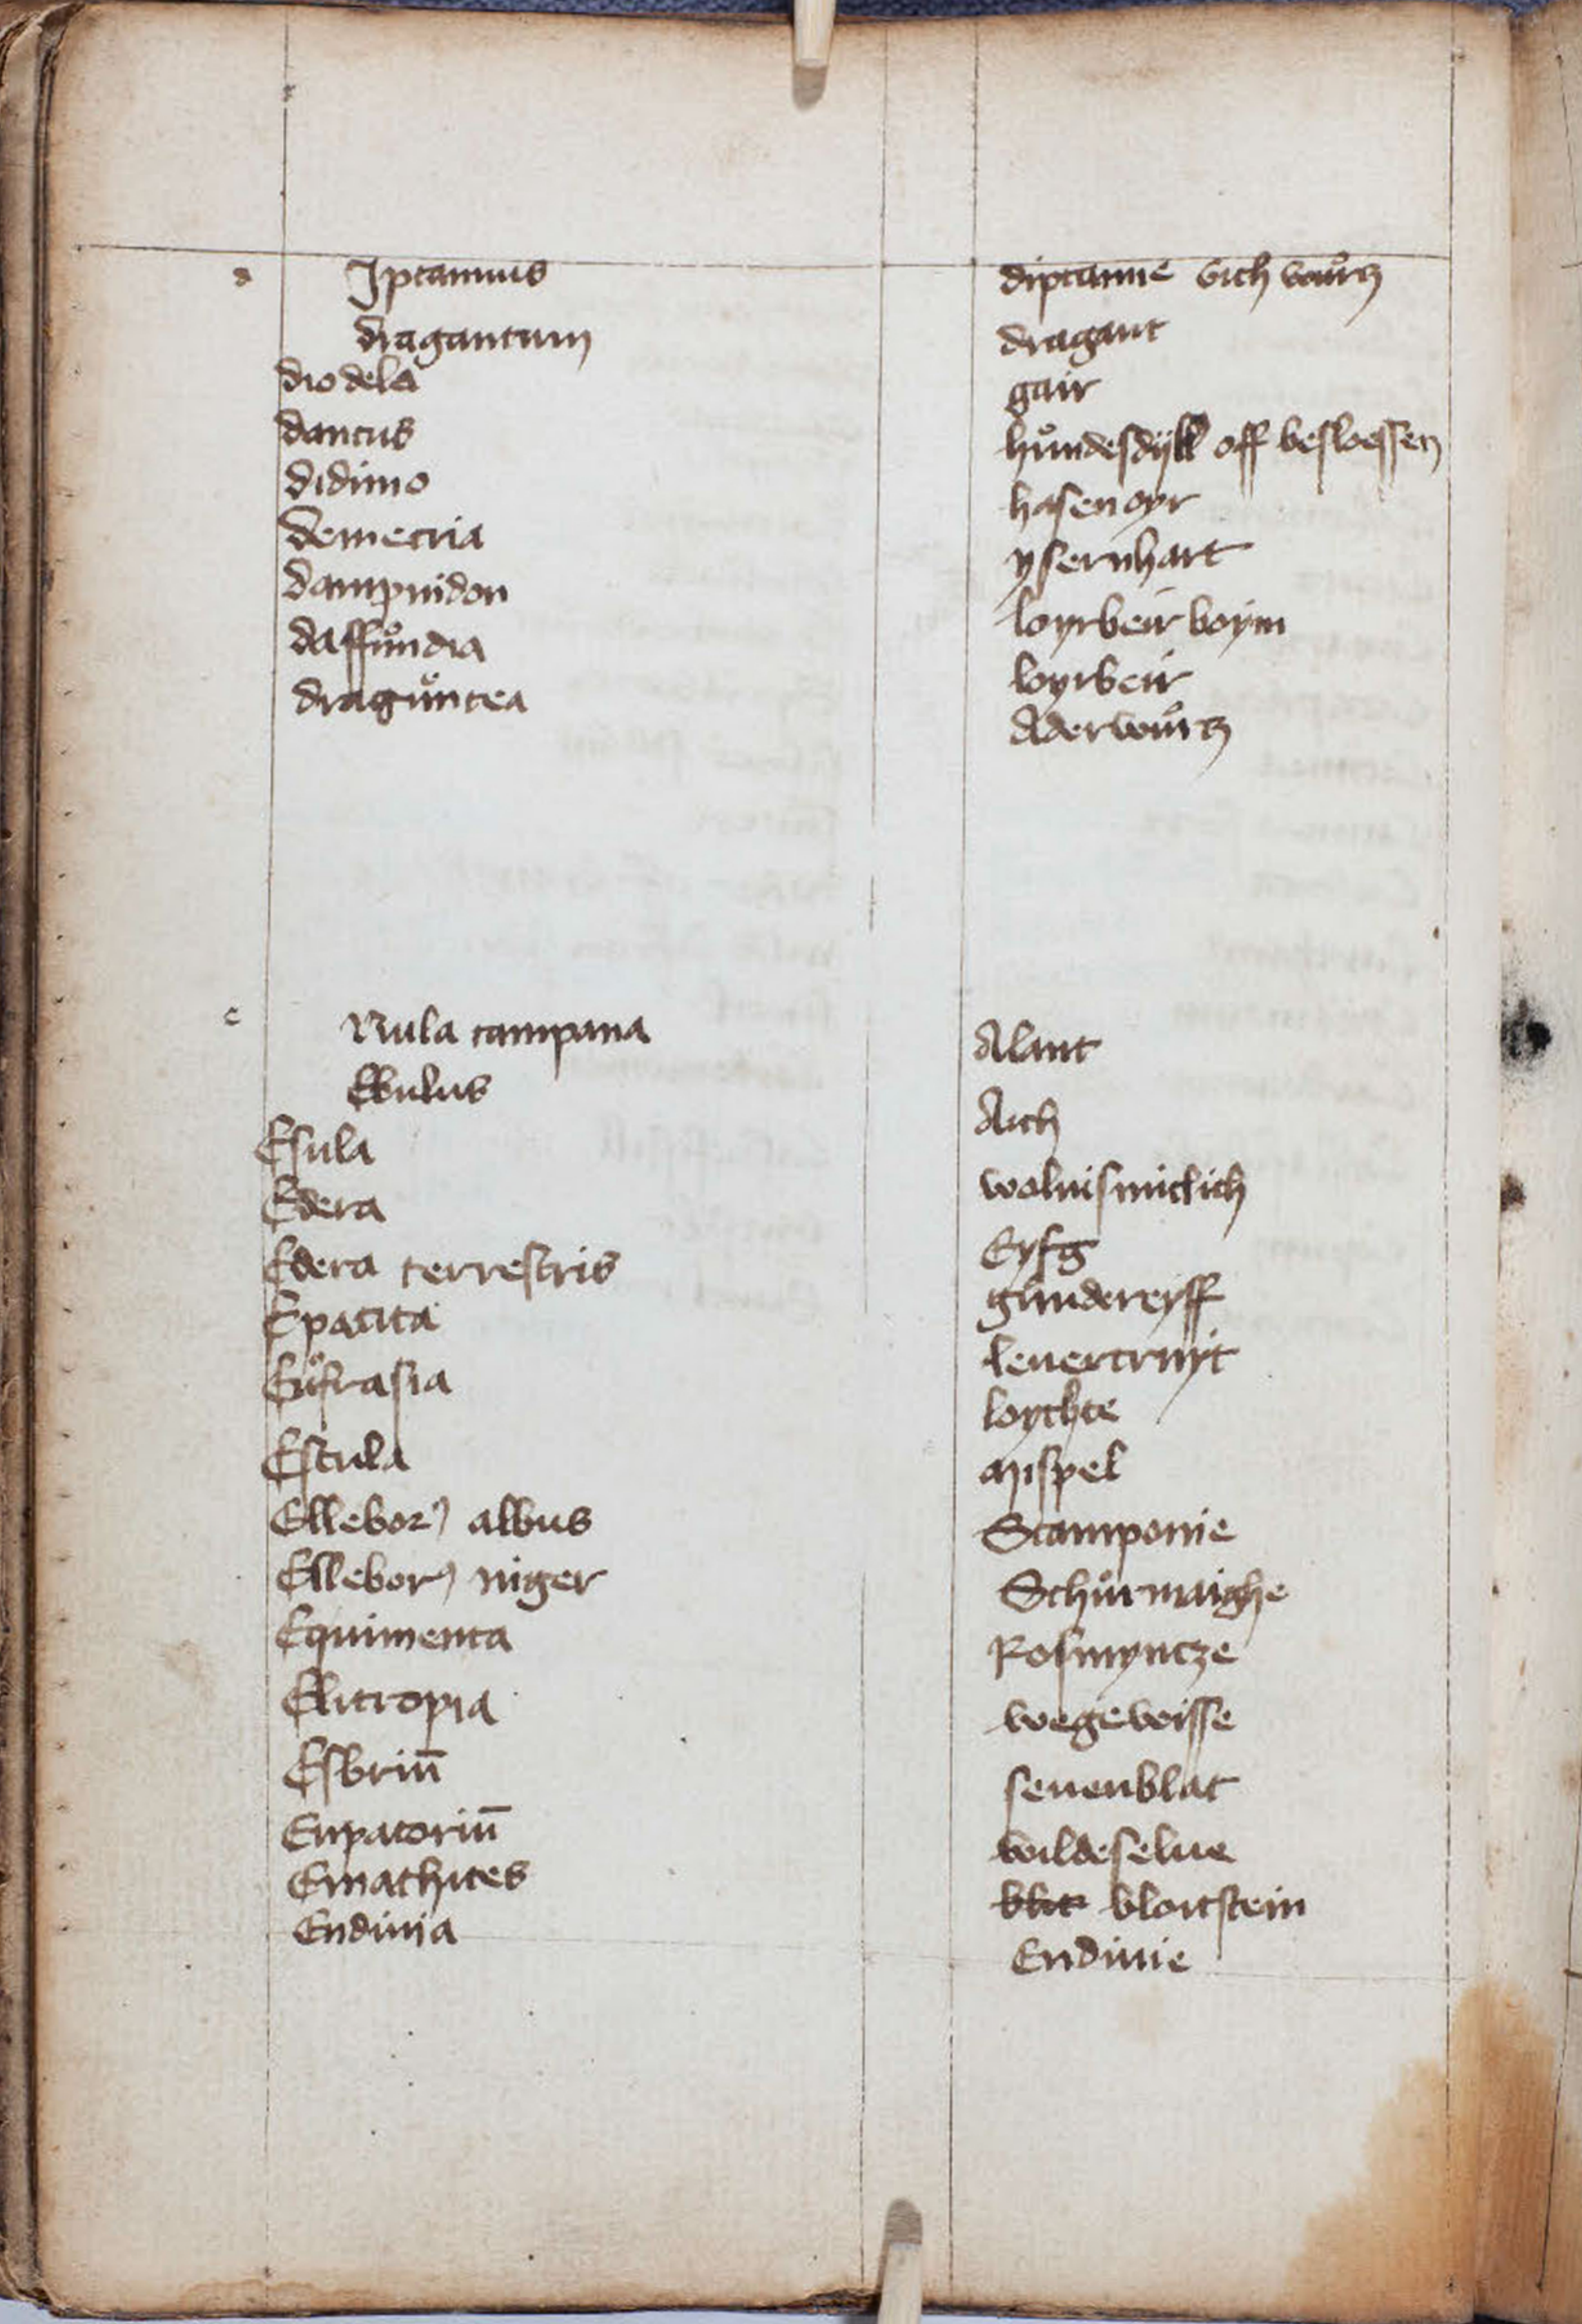 d Iptamus diptamme Gich wůrtz
dragantum dragant
dio dela gair
dancus hůndesdyll off besloessen
didimo hasen oyr
demetria ysernhart
dampnidon loyrbeir boym
daffůndia loyrbeir
dragůntea Aderwůrtz
e Nula campana Alant
Ebulus Aich
Esula woluismiclich
Edera Eyfg
Edera terrestris gůndereyff
Epatita leuercruyt
Eůfrasia loychte
Escula Mispel
Ellebor albus Scamponie
Ellebor niger Schůrmaighe
Equimenta Rosmyncze
Elitropia wegeweisse
Esbriū seuenblat
Eupatoriū wildeselue
Emathites bloitstein
Endiuia Endiuie